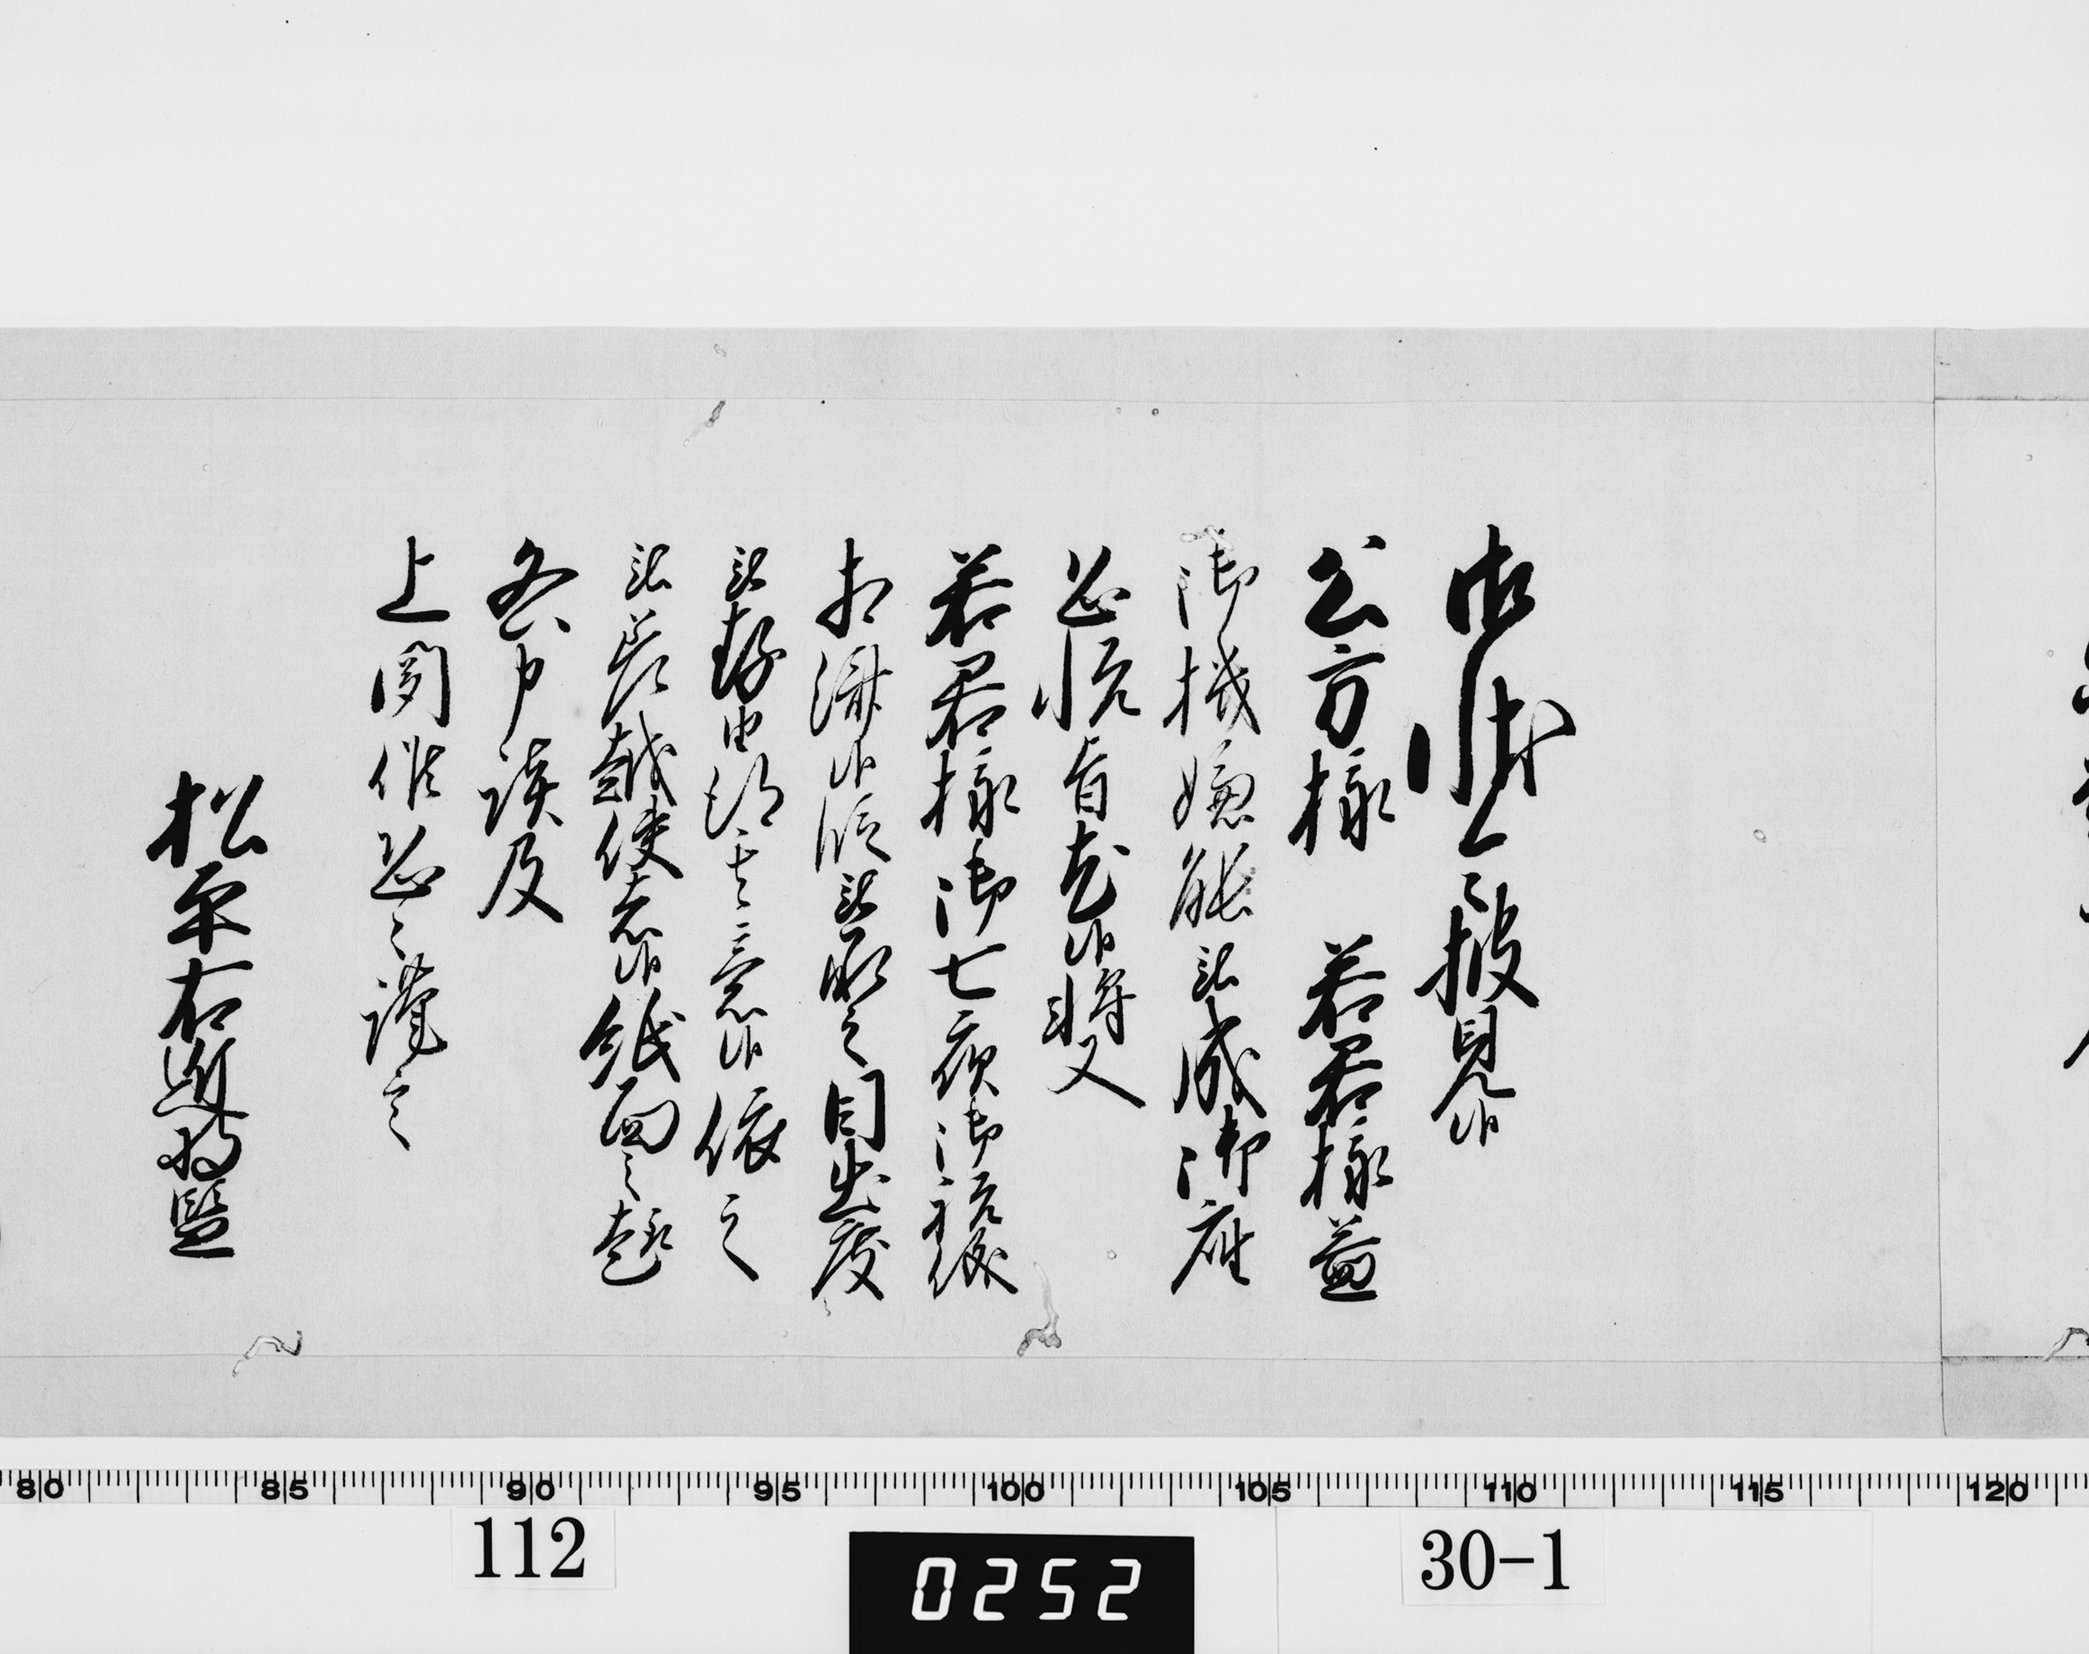 御状令披見候
公方様 若君様益
御機嫌能被成御座
恐悦旨尤候将又
若君様御七夜御祝儀
相濟候段被承之目出度
被存由得其意候依之
被差越使者候紙面之趣
各申談及
上聞候恐々謹言
松平右近将監
80 85 90 95 100 105 110 115 120
112
0252
30-1